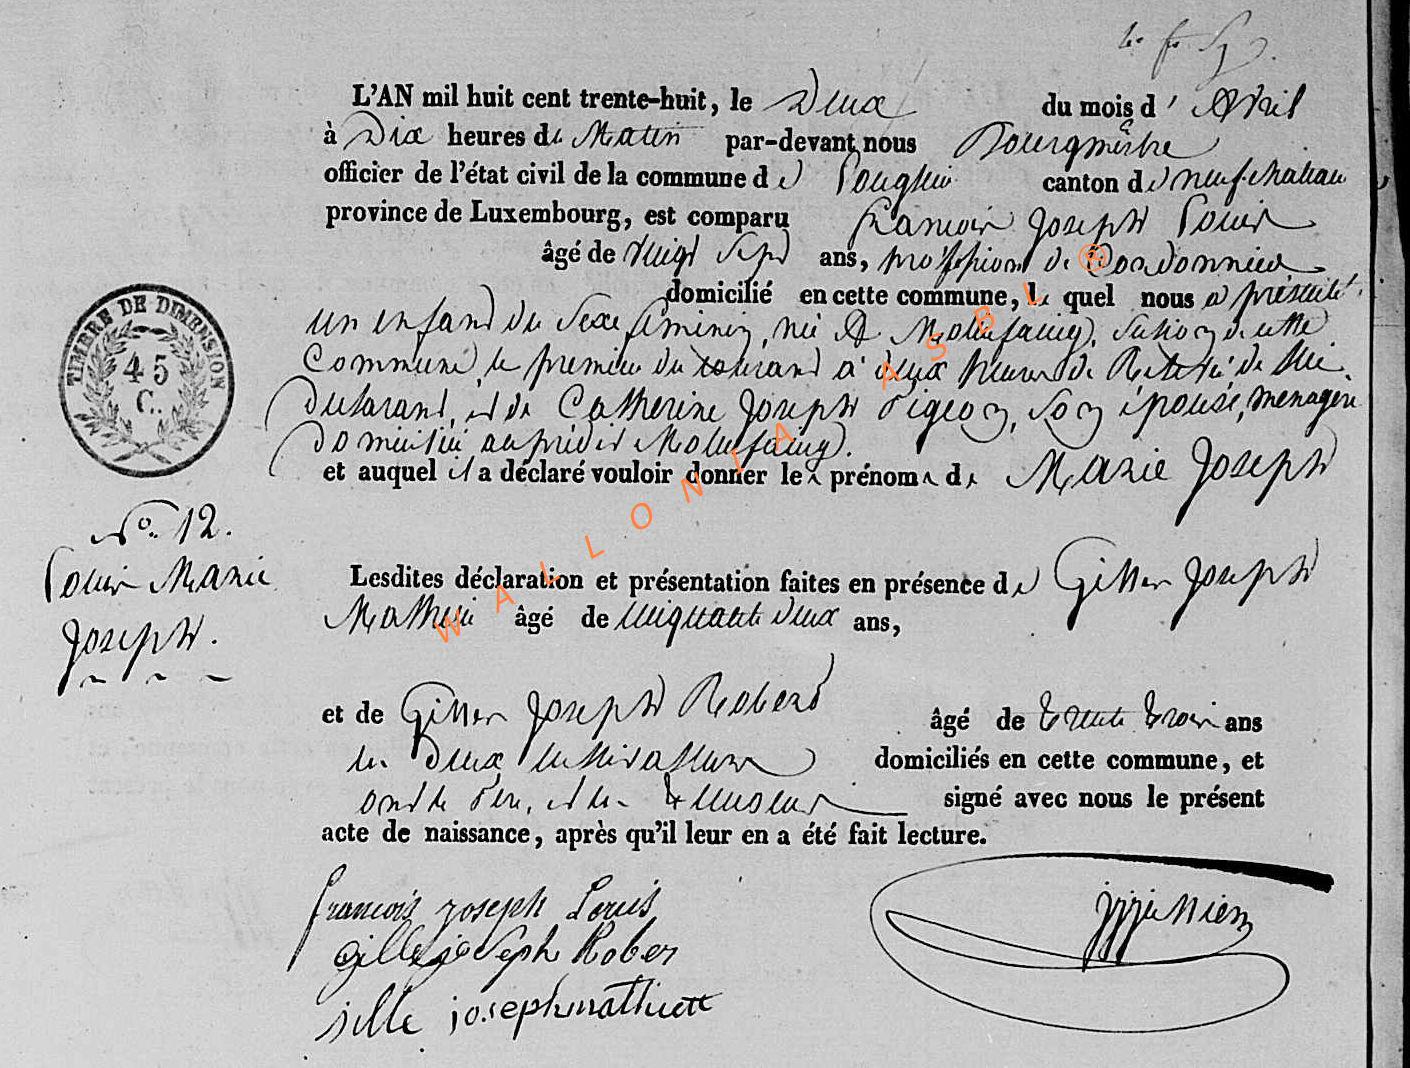 L'AN mil huit cent trente-huit, le Deux du mois d' Avril
à Dix heures du Matin par-devant nous Bourgmêstre
officier de l'état civil de la commune de Longlier canton de neufchateau
province de Luxembourg, est comparu francois Joseph Louis
âgé de vingt Sept ans, profession de Cordonnier
domicilié en cette commune, le quel nous a présenté
un enfant du Sexe féminin, née A Molinfaing, Section de cette
Commune, le premier du courant à deux heures de Relevée de lui
Déclarant, et de Catherine Joseph Pigeon, Son épouse, menagère
Domiciliée audit Molinfaing.
et auquel il a déclaré vouloir donner les prénoms de Marie Joseph
TIMBRE DE DIMENSION
45
C.
No. 12.
Louis Marie
Joseph.
Lesdites déclaration et présentation faites en présence de Gilles Joseph
Mathieu âgé de cinquante deux ans,
et de Gilles Joseph Robert âgé de trente trois ans
les Deux cultivateurs domiciliés en cette commune, et
ont le Père, et les témoins signé avec nous le présent
acte de naissance, après qu'il leur en a été fait lecture.
francois joseph Louis
gille joseph Rober
sille joseph mathieu
WALLONIA ASBL ®